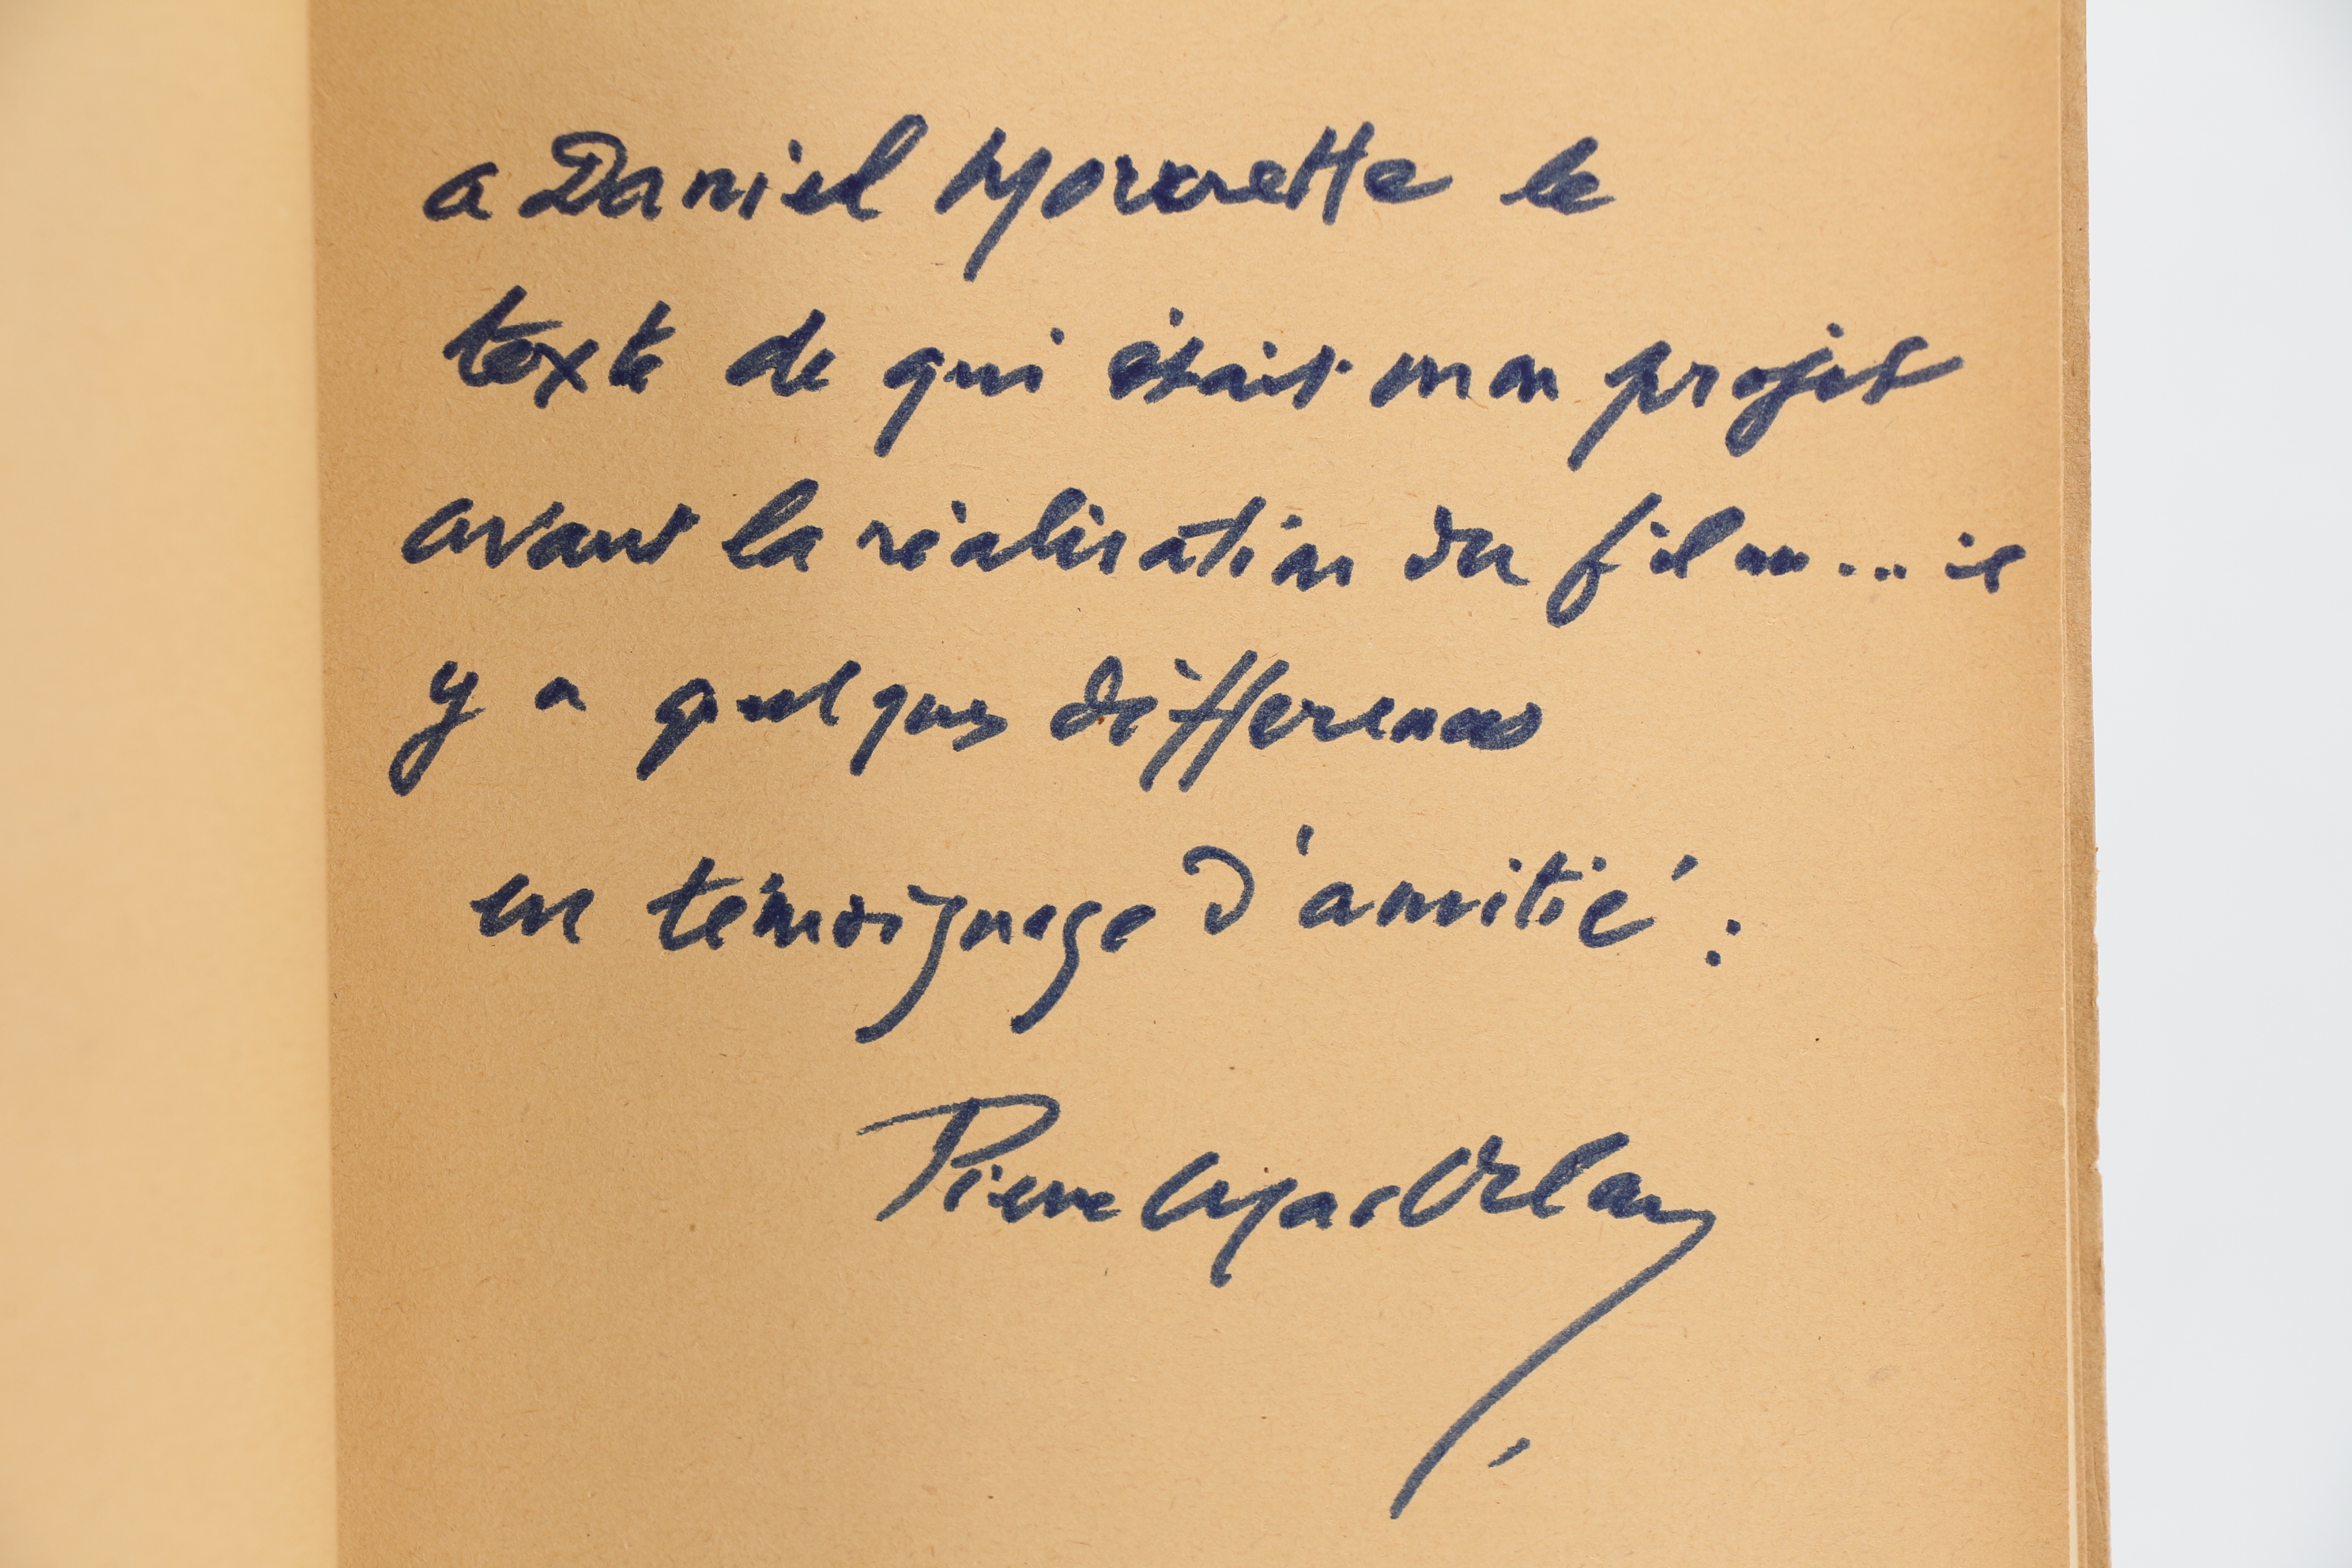 a Daniel Mourette le
texte de qui était mon projet
avant la réalisation du film... il
y a quelques differences
en témoignage d'amitié :
Pierre Mac Orlan